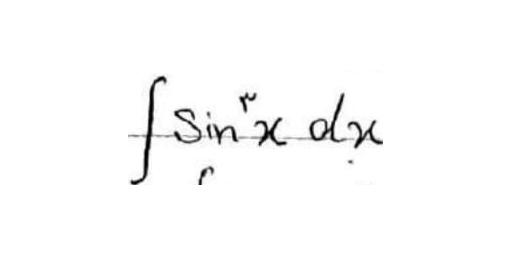 ∫ sin^۳ x dx